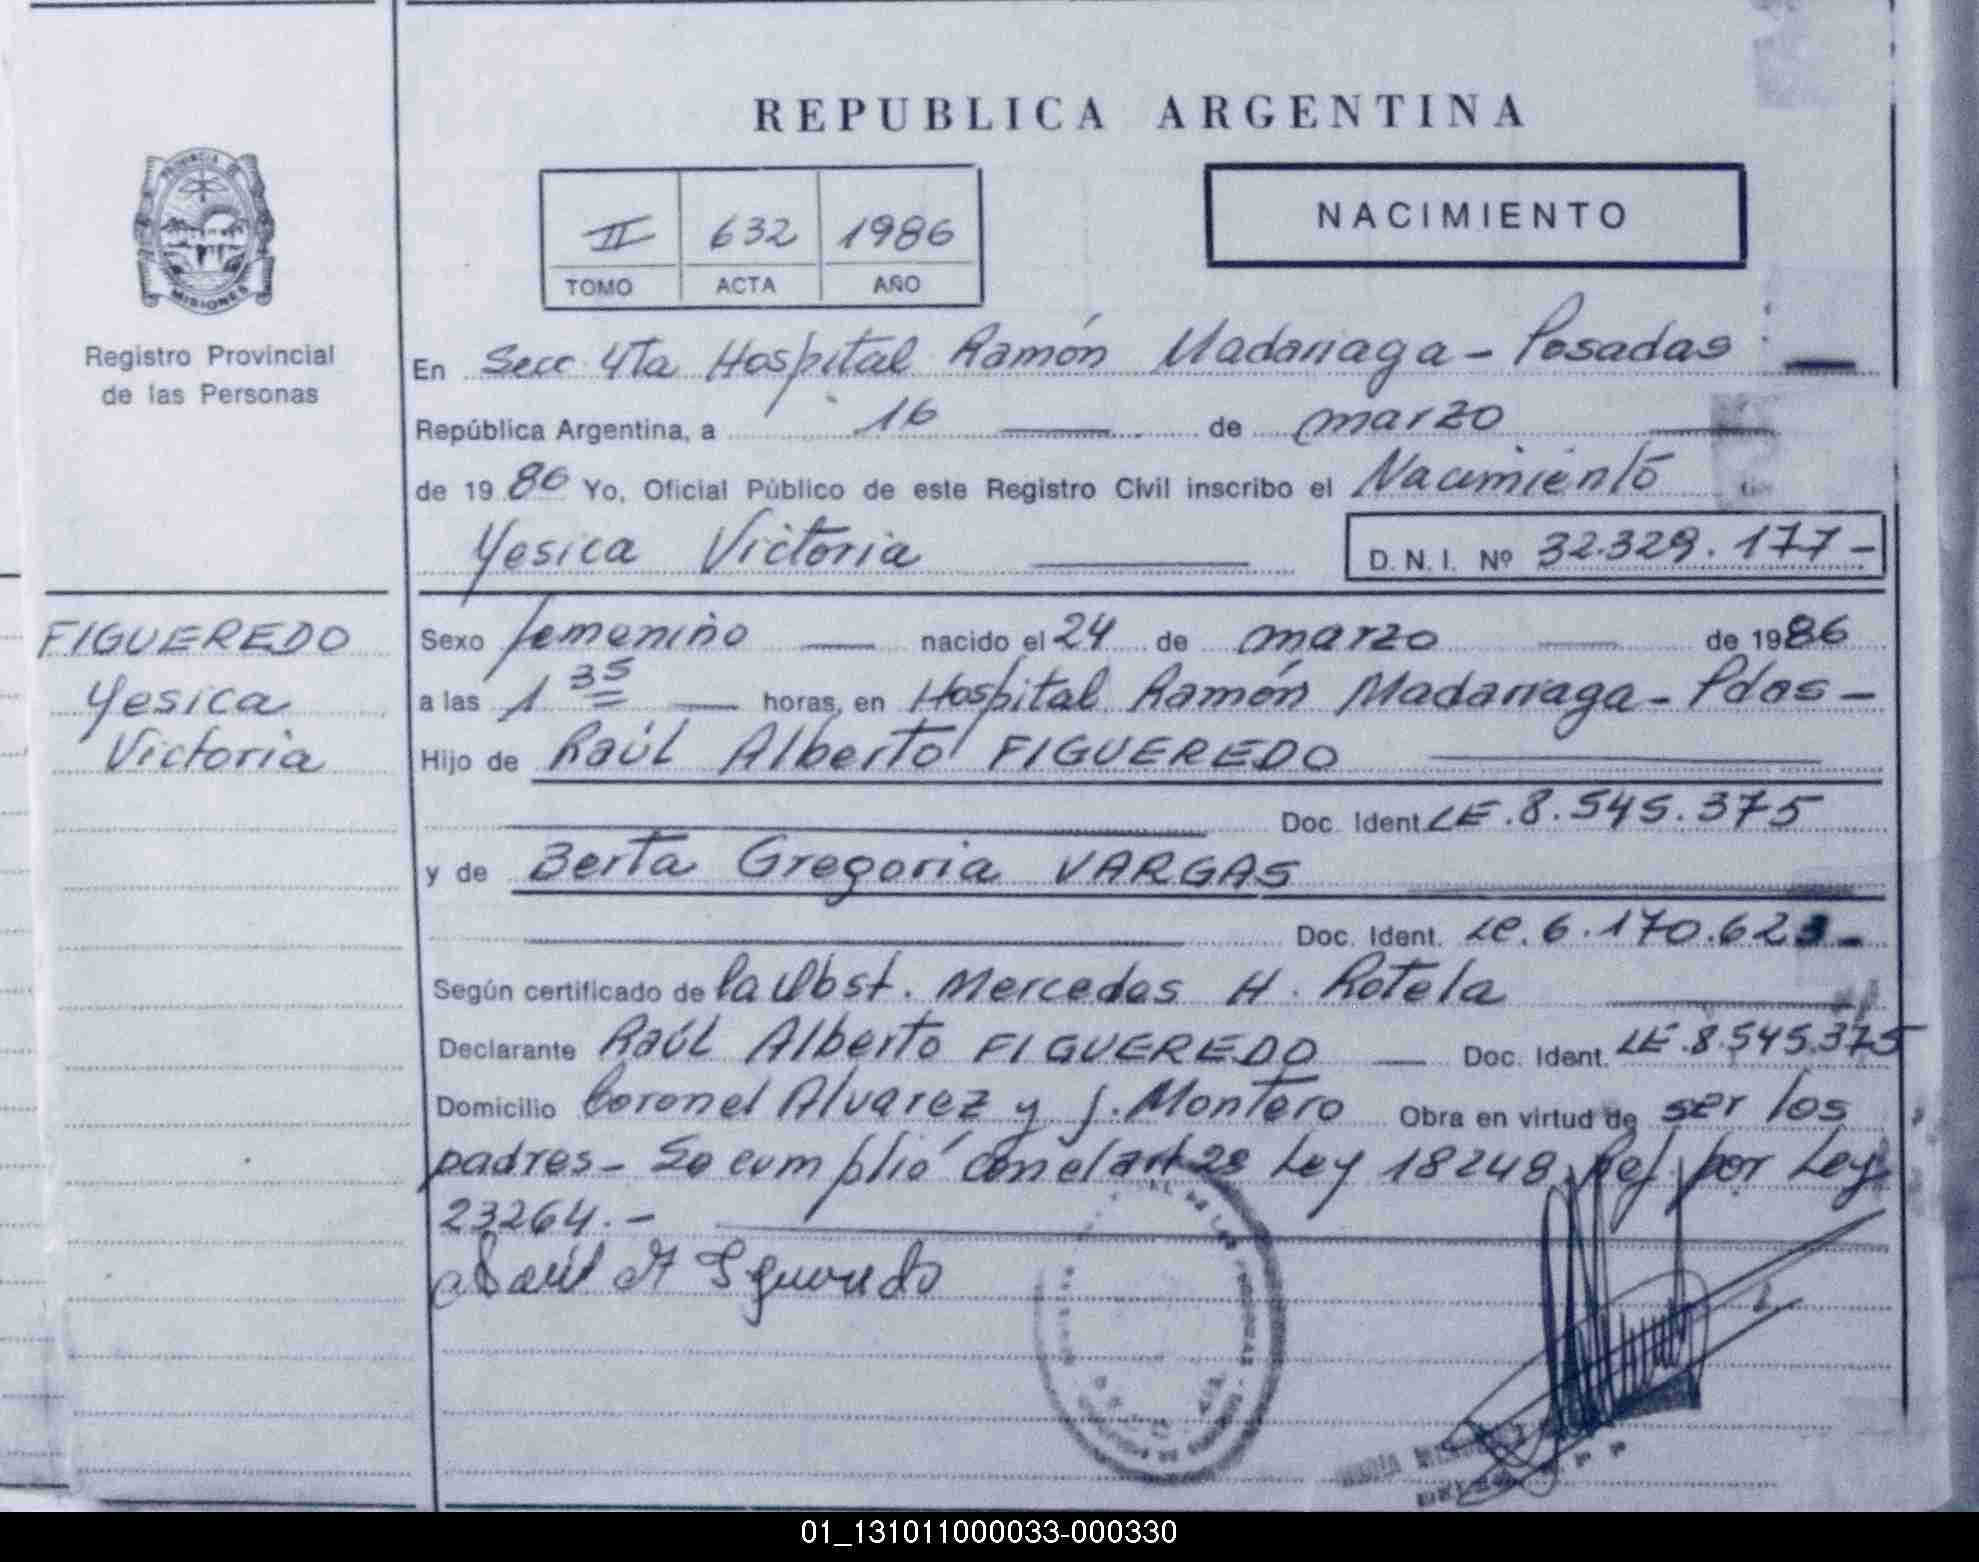 REPUBLICA ARGENTINA
PROVINCIA DE
MISIONES
Registro Provincial
de las Personas
II 632 1986
TOMO ACTA AÑO
NACIMIENTO
En Secc 4Ta Hospital Ramón Madariaga - Posadas
República Argentina, a 16 de marzo
de 19 86 Yo, Oficial Público de este Registro Civil inscribo el Nacimiento
Yesica Victoria D. N. I. Nº 32.329.177 -
FIGUEREDO
Yesica
Victoria
Sexo femenino nacido el 24 de marzo de 1986
a las 1 35 horas, en Hospital Ramón Madariaga - Pdas -
Hijo de Raúl Alberto FIGUEREDO
Doc. Ident. LE. 8.545.375
y de Berta Gregoria VARGAS
Doc. Ident. LC. 6.170.623 -
Según certificado de la Obst. Mercedes H. Rotela
Declarante Raúl Alberto FIGUEREDO Doc. Ident. LE. 8.545.375
Domicilio Coronel Alvarez y J. Montero Obra en virtud de ser los
padres - Se cumplió con el art 2º Ley 18248 Ref por Ley
23264. -
Raúl A Figueredo
01_131011000033-000330